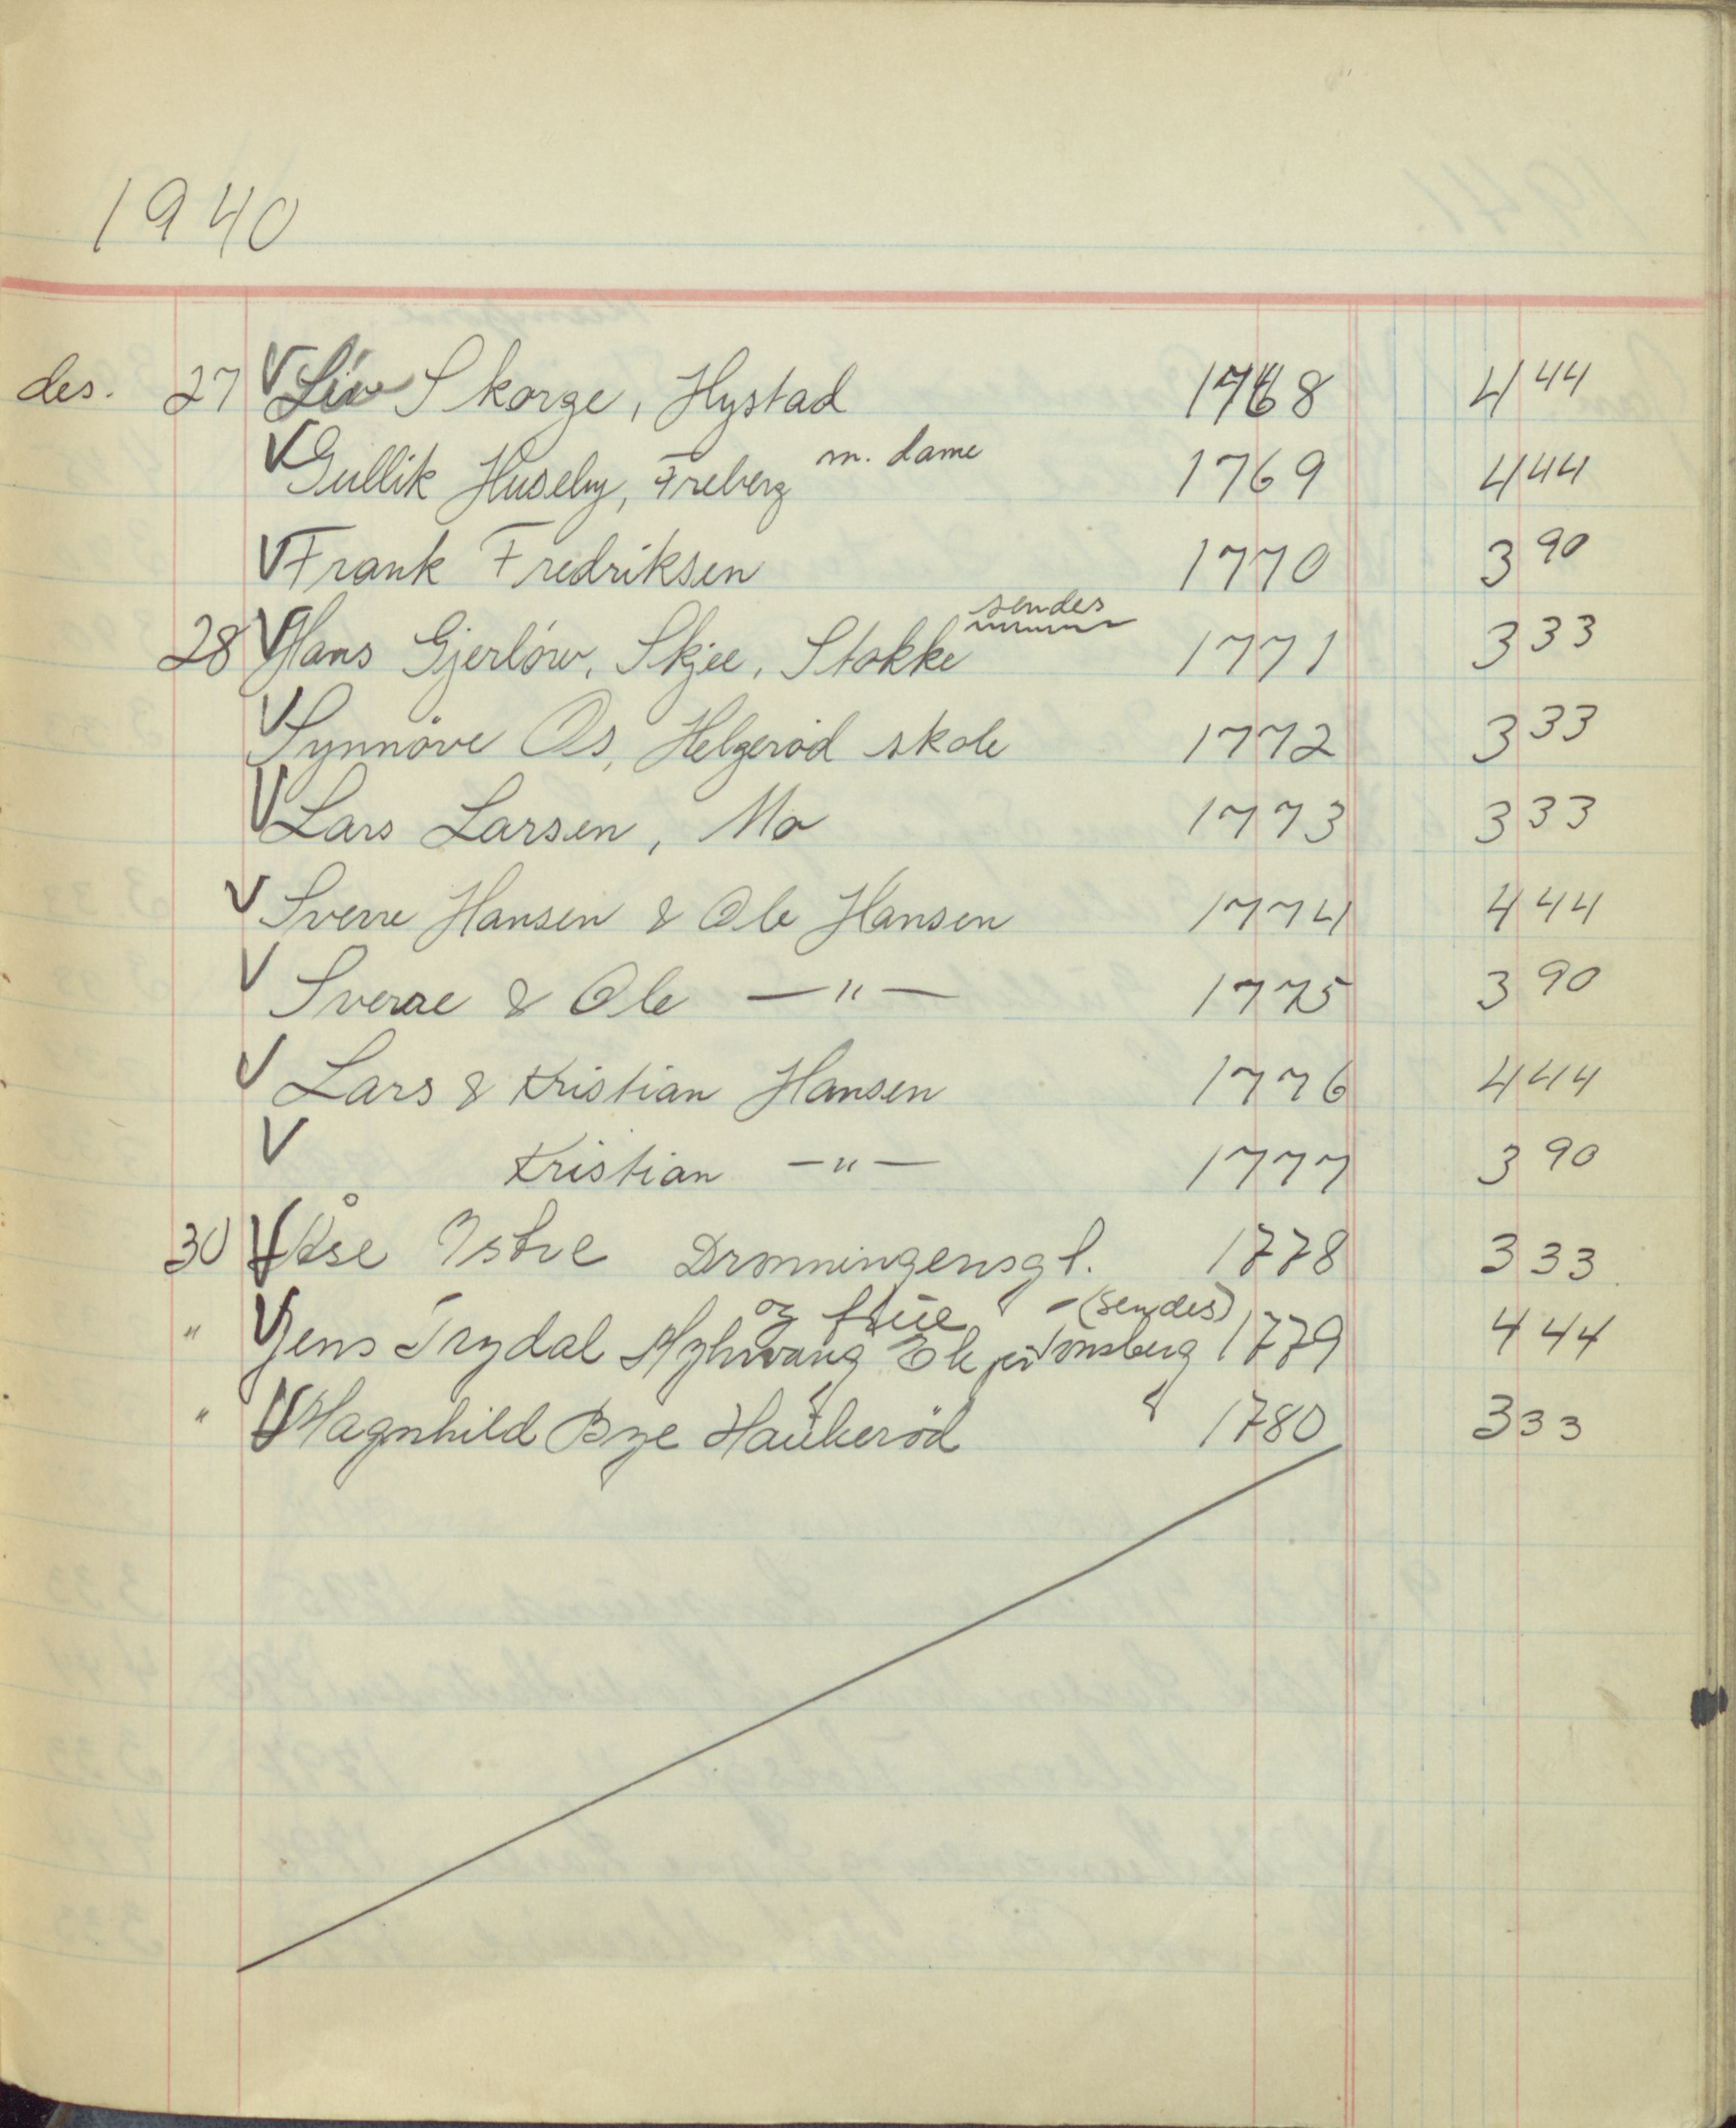 1940
des. 27 V Liv Skorge, Hystad 1768 4 44
V Gullik Huseby, Freberg m. dame 1769 4 44
V Frank Fredriksen 1770 3 90
28 V Hans Gjerløw, Skjee, Stokke sendes 1771 3 33
V Synnøve Os, Helgerød skole 1772 3 33
V Lars Larsen, Mo 1773 3 33
V Sverre Hansen & Ole Hansen 1774 4 44
V Sverre & Ole —"— 1775 3 90
V Lars & Kristian Hansen 1776 4 44
V Kristian —"— 1777 3 90
30 V Åse Istre Dronningensgt. 1778 3 33
og frue - (sendes)
" V Jens Trydal Ek pr Tønsberg 1779 4 44
" V Magnhild Bye Haukerød 1780 3 33